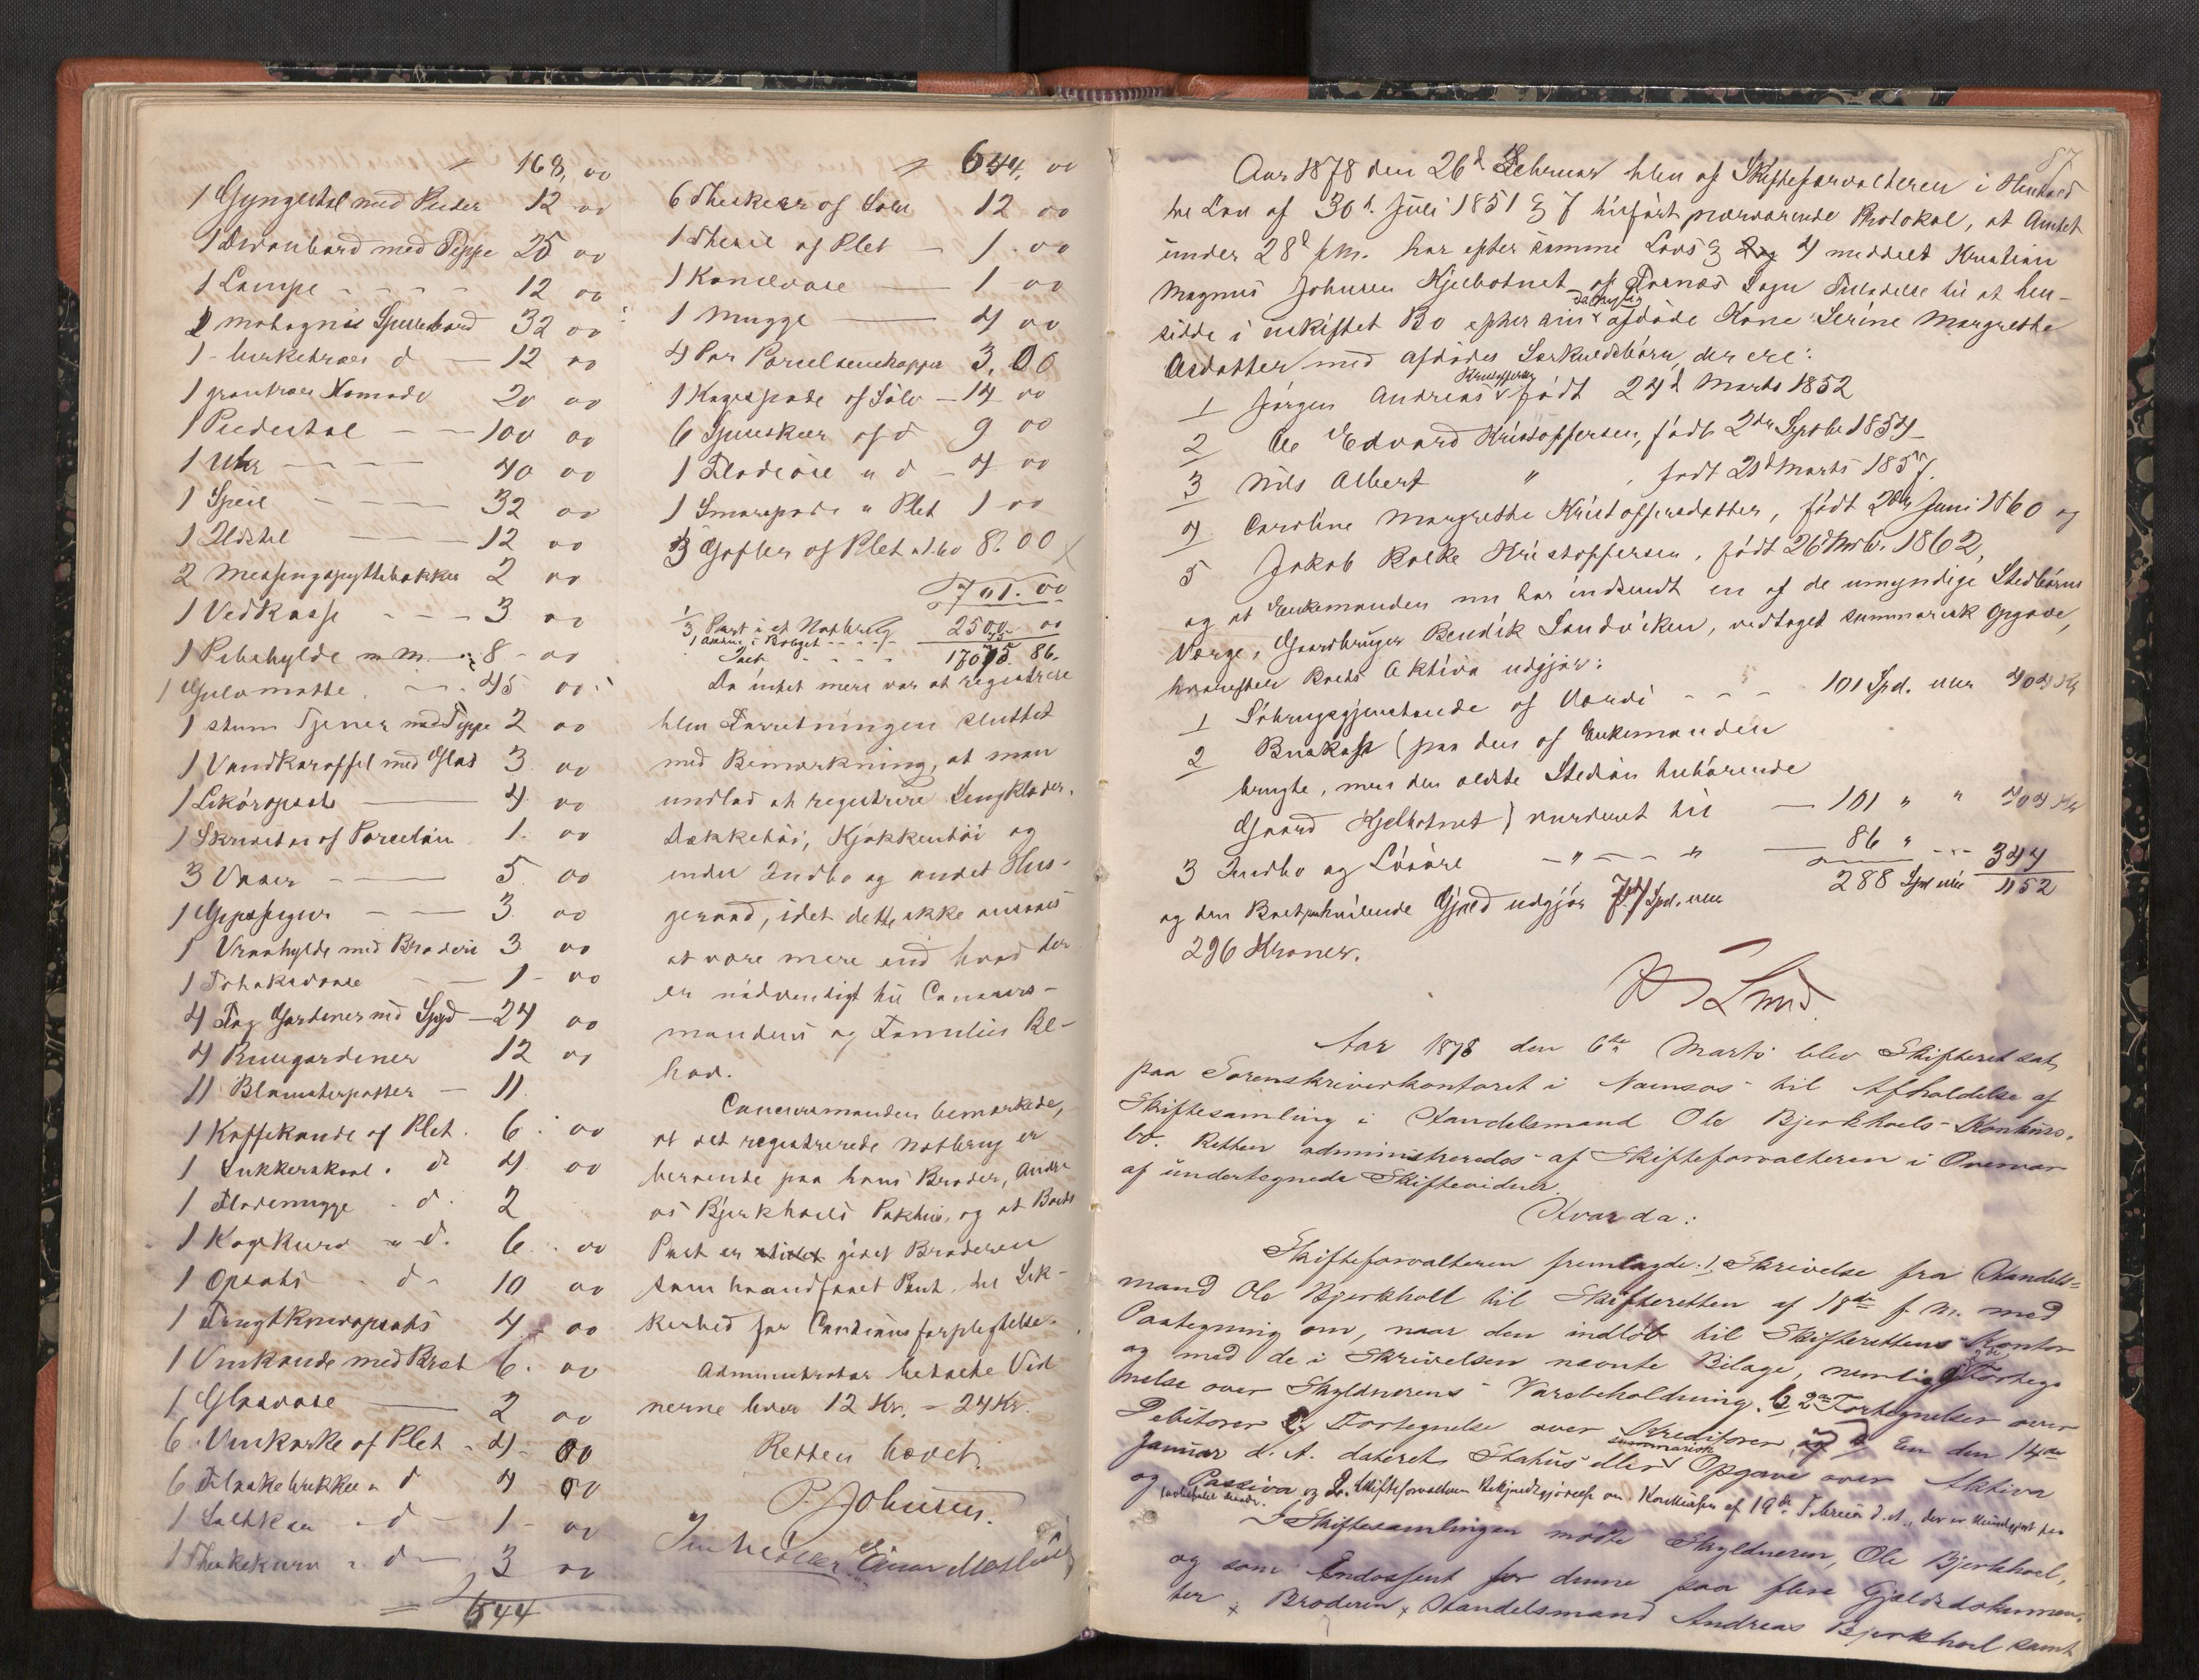 168, 00
1 Gyngestol med Puder 12 00
1 Divanbord med Teppe 25 00
1 Lampe - - - - 12 00
1 mahogni Spillebord 32 00
1 - birketræs d - 12 00
1 grantræs Komode 20 00
1 Piedestal - - 100 00
1 Uhr - - - 40 00
1 Speil - - - 32 00
1 Ildstel - - - 12 00
2 Messingspyttebakker 2 00
1 Vedkasse - - - 3 00
1 Pibehylde m. m. 8 - 00
1 Gulvmatte - 45 00
1 stum Tjener med Teppe 2 00
1 Vandkaraffel med Glas 3 00
1 Likøropsats 4 00
1 Skrivetøi af Porcelain 1. 00
3 Vaser - 5. 00
1 Gipsfigur - - 3 00
1 Vraahylde med Broderi 3 00
1 Tobaksdaase - 1 - 00
4 Fag Gardiner med 24 00
4 Rullgardiner 12 00
11 Blomsterpotter - 11.
1 Kaffekande af Plet. 6. 00
1 Sukkerskaal. d 4. 00
1 Flødemugge. d. 2
1 Kagekurv " d. 6. 00
1 Opsats - d - 10 00
1 Frugtknivopsats 4. 00
1 Vinkande med Bret 6. 00
1 Glasvase 2 00
6 Vinkorke af Plet - 4 - 00
6 d 4 00
1 Saltkar - d - 1 - 00
1 Theskekurv " d - 3 00
= 644
644, 00
6 Theskeer af Sølv 12 00
1 Thesil af Plet - 1. 00
1 Kanelvase - 1 - 00
1 Mugge - 4 00
4 Par Porcelænskopper 3. 00
1 Kagespade af Sølv - 14 00
6 Spiseskeer af d 9 00
1 Flødeøse " d - 4. 00
1 Smørspade " Plet 1 00
3 Gafler af Plet 8. 00
701. 00
1/3 Part i et Notbrug 2500 - 00
- - - - 17075. 86.
Da intet mere var at registrere
blev Forretningen sluttet
med Bemærkning, at man
undlod at registrere Sengklæder,
Dækketøi, Kjøkkentøi og
andet Indbo og andet Hus-
geraad, idet dette ikke ansaaes
at være mere end hvad der
er nødvendigt til Concurs-
mandens og Families Be-
hov.
Concursmanden bemærkede,
at det registrerede Notbrug er
beroende paa hans Broder, Andre-
as Bjerkhoels Pakhus, og at Boets
Part er givet Broderen
som haandfaaet Pant til Sik-
kerhed for Cautionsforpligtelse.
Administrator betalte Vid-
nerne hver 12 Kr. = 24 Kr.
Retten hævet.
P. Johnsen.
87
Aar 1878 den 26d Februar blev af Skifteforvalteren i Henhold
til Lov af 30 d. Juli 1851 § 7 tilført nærværende Protokol, at Amtet
under 28d f. M. har efter samme Lovs § 4 meddelt Kristian
Magnus Johnsen Kjelbotnet af Fosnæs Sogn Tilladelse til at hen-
sidde i uskiftet Bo efter sin afdøde Kone Serine Margrethe
Asdatter med afdødes Særkuldsbørn, der ere:
Kristoffersen
1 Jørgen Andreas født 24d Marts 1852
2 Ole Edvard Kristoffersen, født 2den Septbr 1854
3 Nils Albert " , født 21d Marts 1857.
4 Caroline Margrethe Kristoffersdatter, født 2den Juni 1860 og
5 Jakob Kristoffersen, født 26d 1862,
og at Enkemanden nu har indsendt en af de umyndige Stedbørns
Værge, Gaardbruger Bendik Sandviken, vedtaget summarisk Opgave,
hvorefter Boets Aktiva udgjør:
1 Søbrugsgjenstande af Værdi - - - 101 Spd. eller 404 Kr
2 Buskap (paa den af Enkemanden
brugte, men den ældste Stedsøn tilhørende
Gaard Kjelbotnet) vurderet til - 101 " " 404 Kr
3 Indbo og Løsøre - " - - " - 86 " - - - 344
288 Spd eller 1152
og den Boet paahvilende Gjæld udgjør 74 Spd. eller
296 Kroner.
Aar 1878 den 6te Marts blev Skifteret sat
paa Sorenskriverkontoret i Namsos til Afholdelse af
Skiftesamling i Handelsmand Ole Bjerkhoels Konkurs-
bo. Retten administreredes af Skifteforvalteren i Overvær
af undertegnede Skiftevidner.
Hvorda:
Skifteforvalteren fremlagde: 1, Skrivelse fra Handels-
mand Ole Bjerkholt til Skifteretten af 18de f. M. med
Paategning om, naar den indløb til Skifterettens Kontor
og med de i Skrivelsen nævnte Bilage, nemlig Forteg-
nelse over Skyldnerens Varebeholdning, 2 Fortegnelser over
Debitorer, Fortegnelse over Kreditorer, En den 14de
summarisk
Januar d. A. dateret Status eller Opgave over Aktiva
og Passiva og 2. Skifteforvalterens Bekjendtgjørelse om Konkursen af 19de Februar d. A., der er
I Skiftesamlingen mødte Skyldneren, Ole Bjerkhoel,
og som Endossent for denne paa flere Gjældsdokumen-
ter Broderen, Handelsmand Andreas Bjerkhoel samt